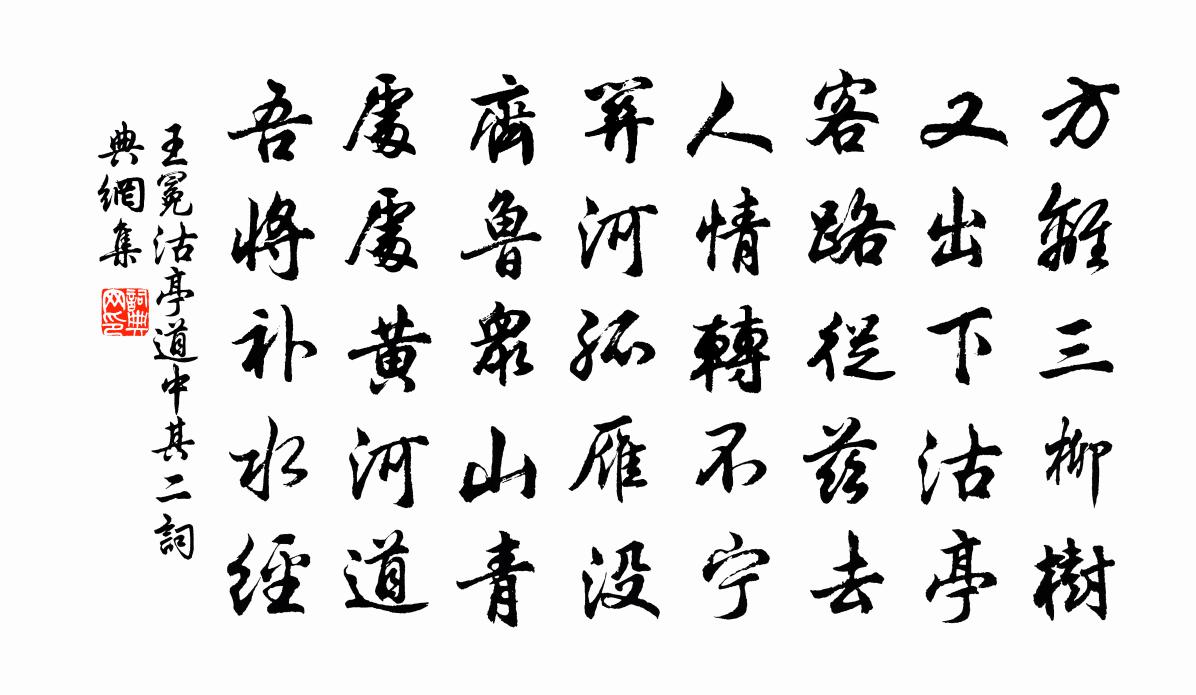 方離三柳樹
又出下沽亭
客路從茲去
人情轉不宁
羿河孤雁没
齊魯眾山青
處處黃河道
吾將补水經
王冕沽亭道中其二詞
典網集
詞典
网印